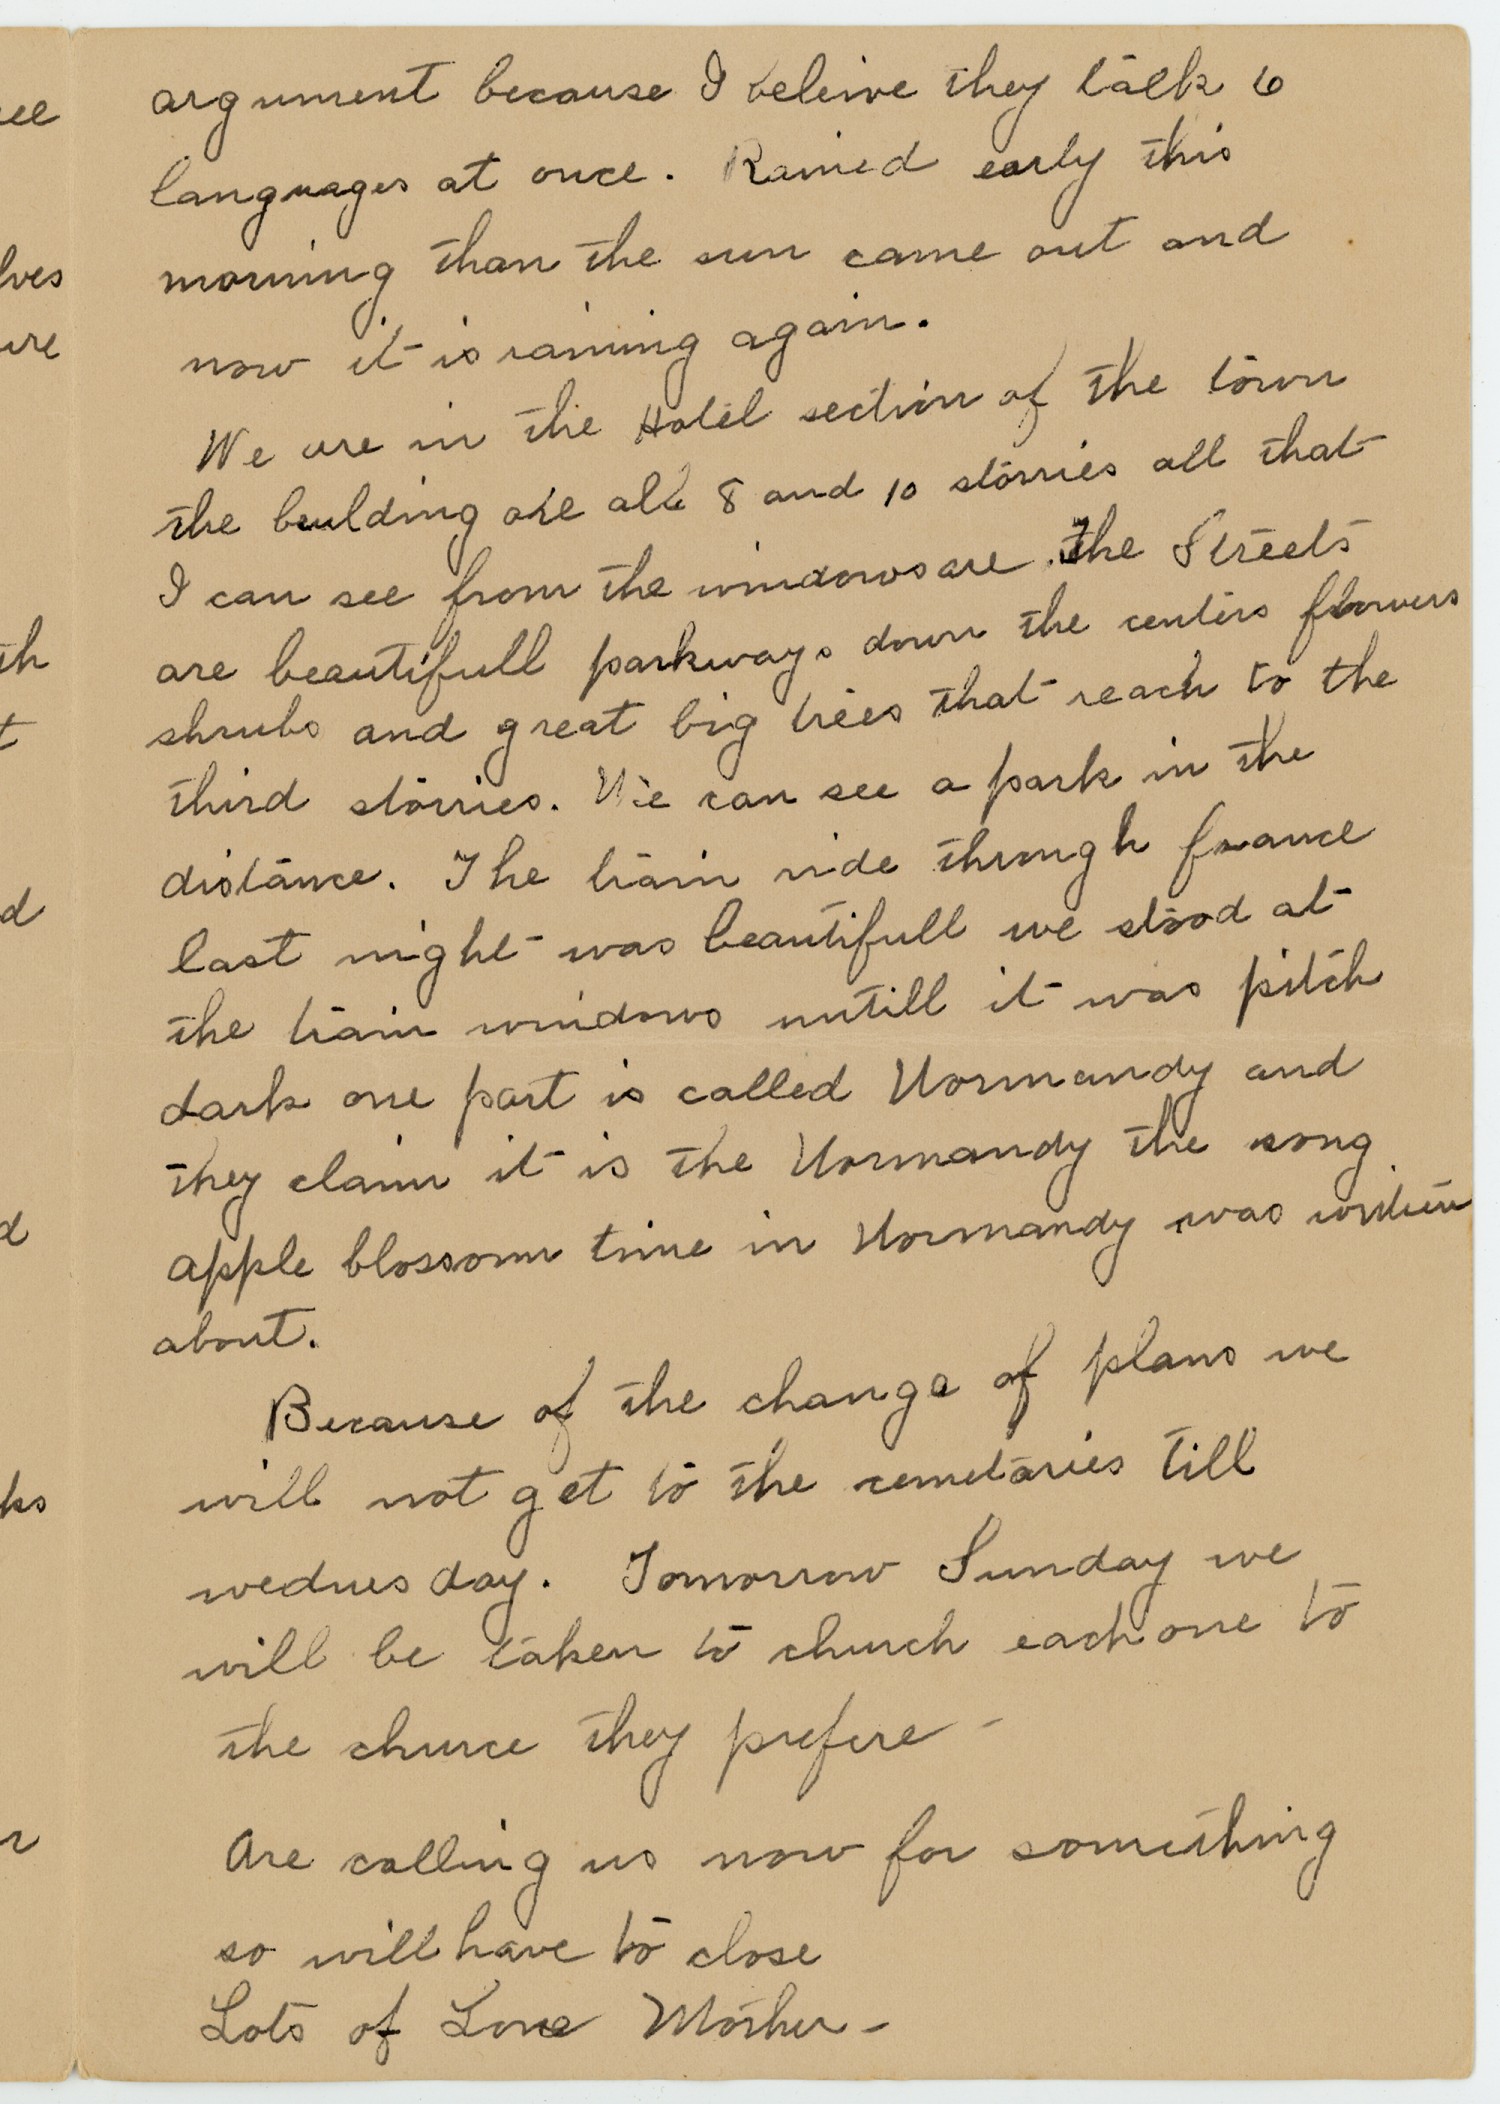 argument because I beleive they talk 6
languages at once. Rained early this
morning than the sun came out and
now it is raining again.
We are in the Hotel section of the town
the building are all 8 and 10 storries all that
I can see from the windows are. The Streets
are beautifull parkways down the centers flowers
shrubs and great big trees that reach to the
third storries. We can see a park in the
distance. The train ride through france
last night was beautifull we stood at
the train windows untill it was pitch
dark one part is called Normandy and
they claim it is the Normandy the song
apple blossom time in Normandy was written
about.
Because of the change of plans we
will not get to the cemetaries till
wednesday. Tomorrow Sunday we
will be taken to church each one to
the churce they prefere -
Are calling us now for something
so will have to close
Lots of Love Mother -